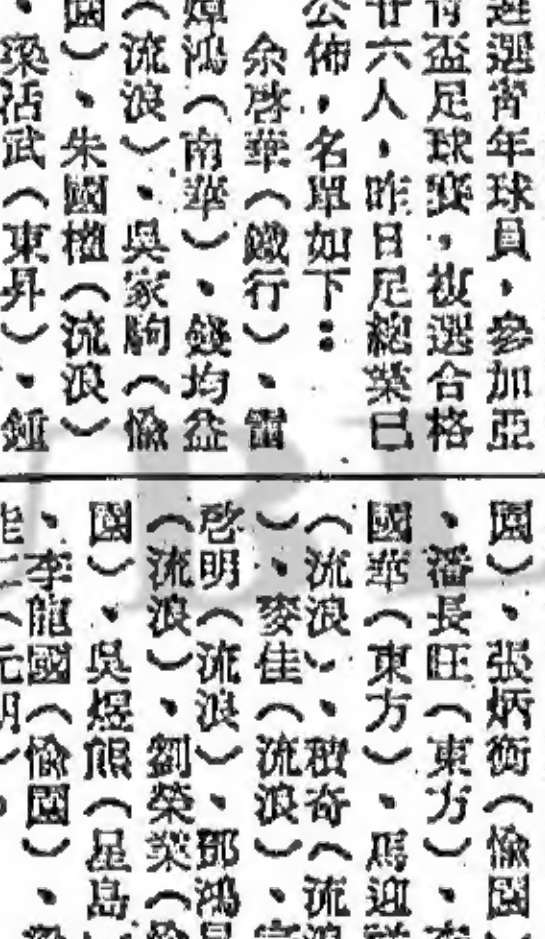 選靑年球員，參加亞
靑盃足球賽，複選合格
廿六人，昨日足總業已
公佈，名單如下：
余啓華（鐵行）、雷
煒鴻（南華）、錢均益
（流浪）、吳家駒（愉
園）、朱國權（流浪）
、梁活武（東昇）、鍾
園）、張炳衡（愉園）
、潘長旺（東方）、李
國華（東方）、馬迎
（流浪）、積奇（流浪
）、麥佳（流浪）、
啓明（流浪）、鄧鴻昌
（流浪）、劉榮業（愉
園）、吳焜熊（星島
、李龍國（愉園）、梁
仁（元朗）、